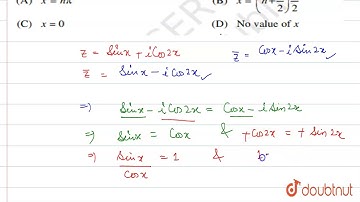 (A) x = nπ (B) x = (n + 1/2) π/2
(C) x = 0 (D) No value of x
z = Sinx + i Co2x z̄ = Cosx - i Sin2x
z̄ = Sinx - i Co2x
⇒ Sinx - i Co2x = Cosx - i Sin2x
⇒ Sinx = Cosx & + Co2x = + Sin2x
⇒ Sinx/Cosx = 1 &
doubtnut